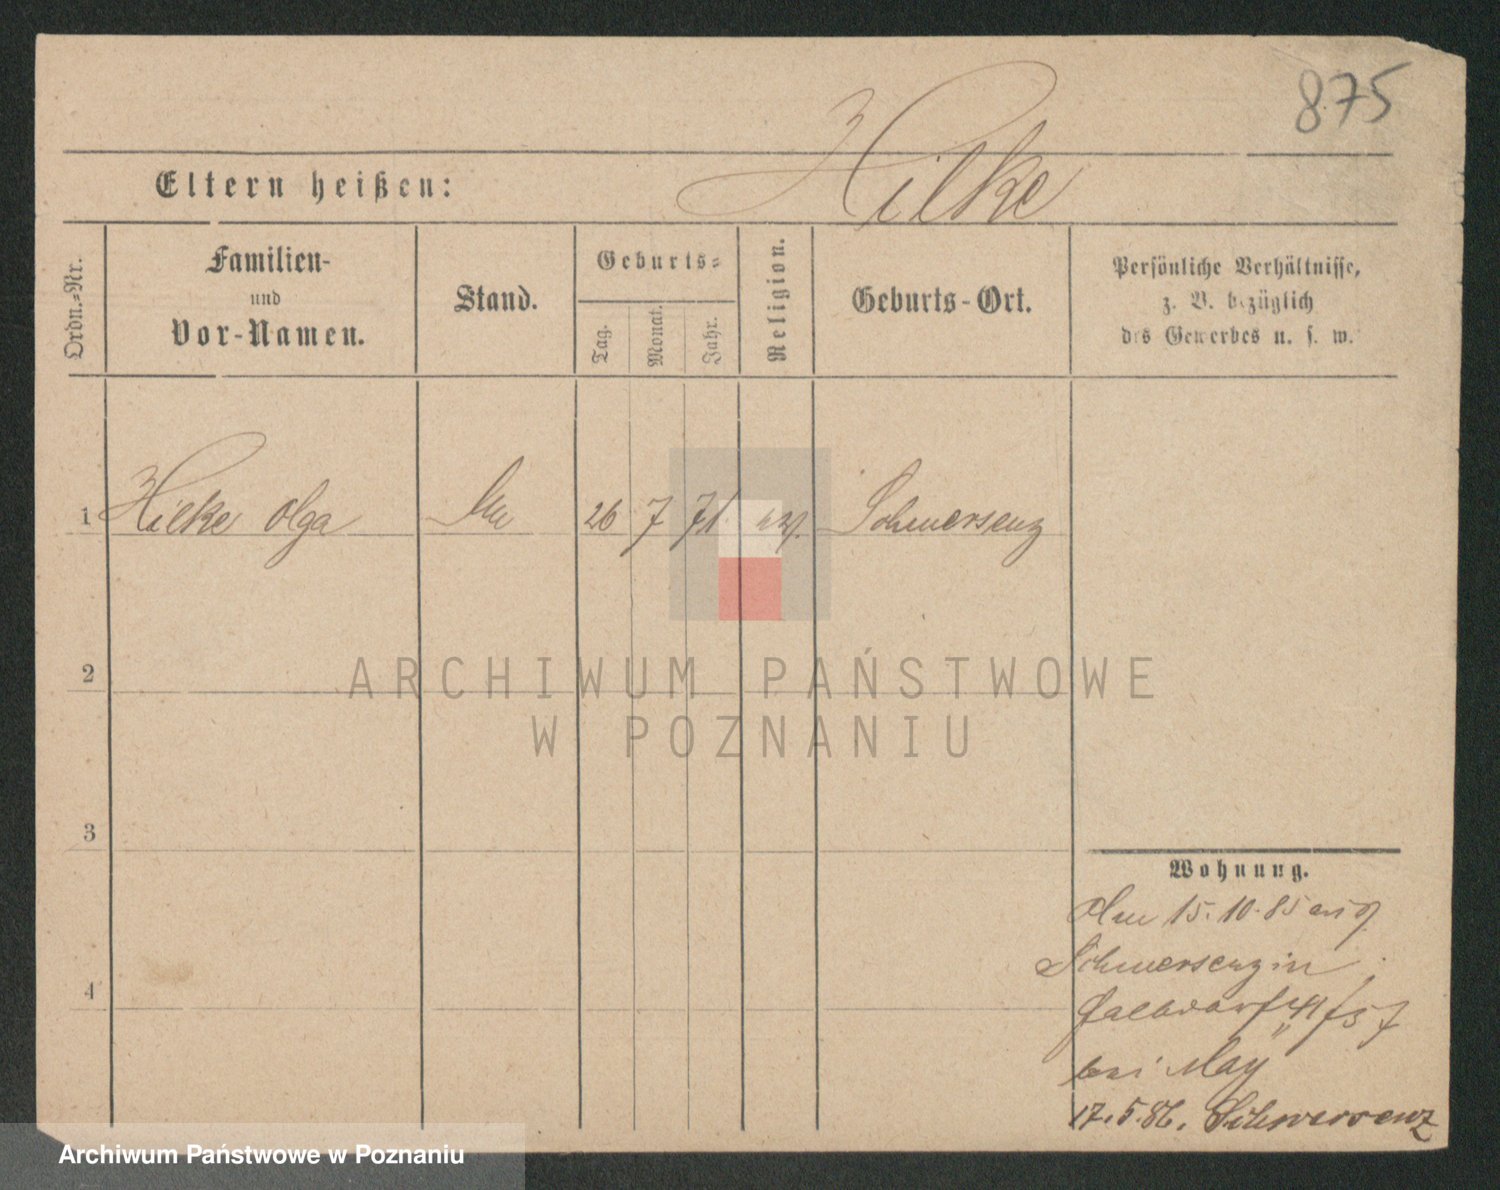 875
Hilke
Eltern heißen:
Ordn.-Nr.
Familien-
und
Vor-Namen.
Stand.
Geburts-
Tag.
Monat.
Jahr.
Religion.
Geburts-Ort.
Persönliche Verhältnisse,
z. B. bezüglich
des Gewerbes u. s. w.
1 Hilke Olga 26 7 71 Schwersenz
2
3
4
ARCHIWUM PAŃSTWOWE
W POZNANIU
Wohnung.
15.10.85
Schwersenz in
bei May
17.5.86. Schwersenz
Archiwum Państwowe w Poznaniu